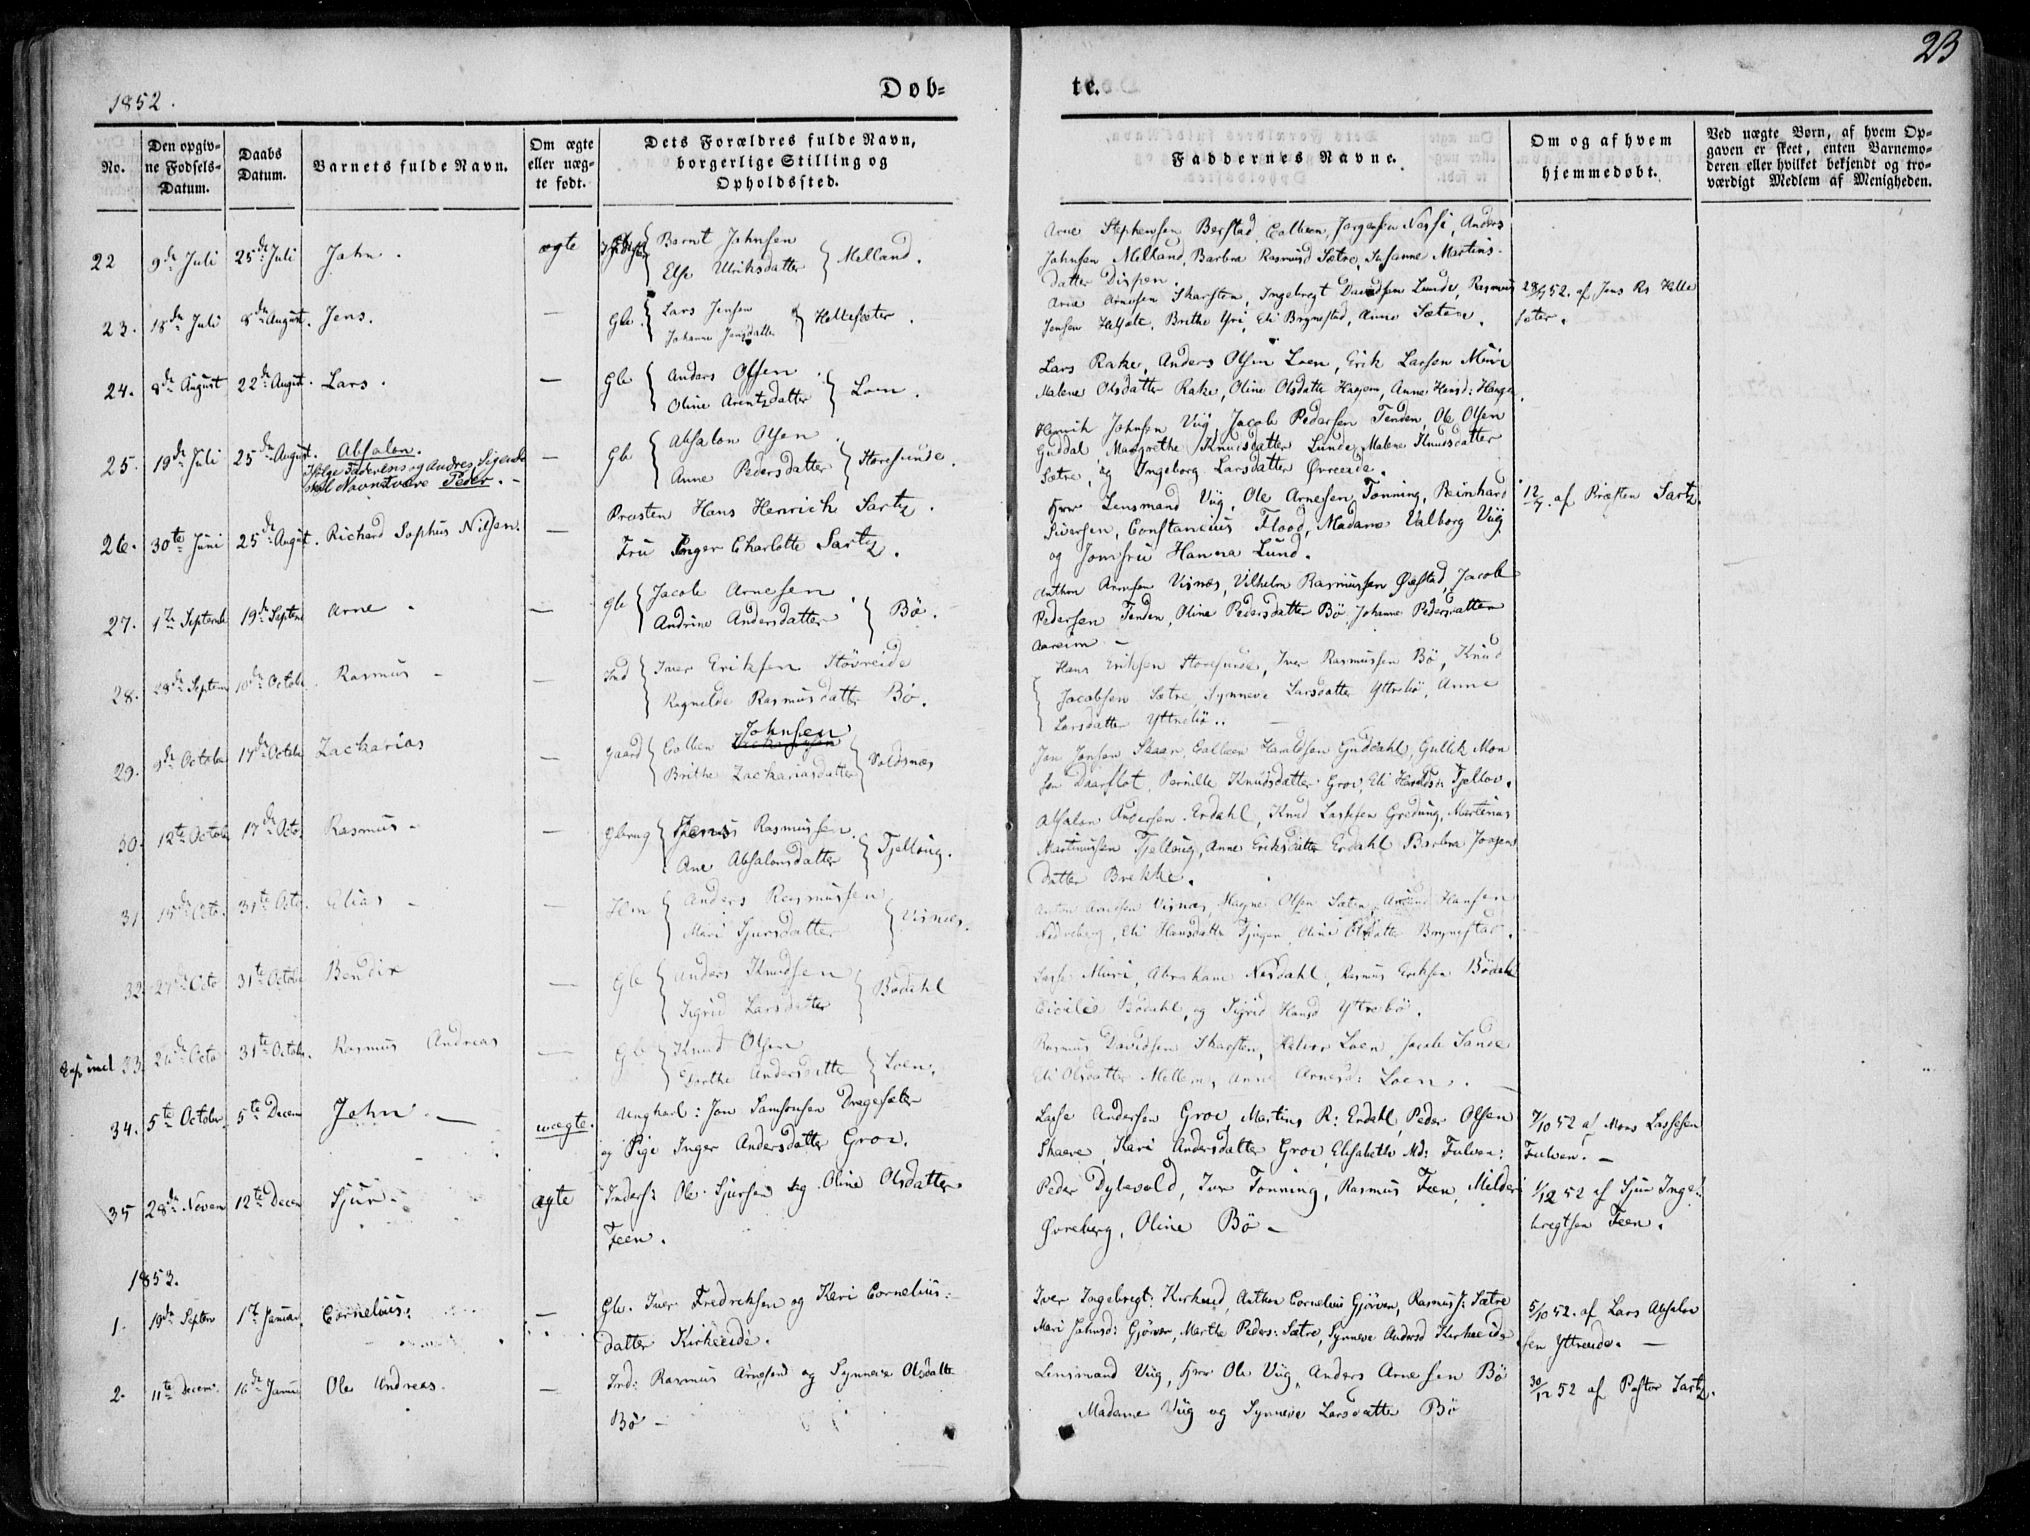 23
1852.
Døb-
te.
No.
Den opgiv-
ne Fødsels-
Datum.
Daabs
Datum.
Barnets fulde Navn.
Om ægte
eller uæg-
te født.
Dets Forældres fulde Navn,
borgerlige Stilling og
Opholdssted.
Faddernes Navne.
Om og af hvem
hjemmedøbt.
Ved uægte Børn, af hvem Op-
gaven er skeet, enten Barnemo-
deren eller hvilket bekjendt og tro-
værdigt Medlem af Menigheden.
22 9de Juli 25de Juli John. ægte
Bernt Johnsen
Else Ulriksdatter
Melland.
Arne Stephensen Berstad, Colben Jørgensen, Anders
Johnsen Melland, Barbra Rasmusd Sætre, Susanne Martins-
datter
23. 18de Juli 8de August. Jens. — Gbr.
Lars Jensen
Johanne Jensdatter
Hellesæter.
Arnesen Skarsten, Ingebregt Davidsen Lunde, Rasmus
Jensen, Brithe Yri, Eli Brynestad, Anne Sæten.
52. af Jens Rs Helle
sæter.
24. 8de August 22de August. Lars. — Gbr
Anders Olsen
Oline Arentsdatter
Loen.
Lars Rake, Anders Olsen Loen, Erik Lassen Muri
Malene Olsdatter Rake, Oline Olsdatter, Anne Hansd:
25. 19de Juli 25de August. Absalon.
Ifølge Faderens og Andres Sigende
skal Navnet være Peder. —
— Gbr
Absalon Olsen
Anne Pedersdatter
Storesunde.
Henrik Johnsen Viig, Jacob Pedersen Tenden, Ole Olsen
Guddal, Margrethe Knudsdatter Lunde, Malene Knudsdatter
Sætre, og Ingeborg Larsdatter Øvreeide.
26. 30te Juni 25de August. Richard Sophus Nilsen. —
Præsten Hans Henrich Sartz.
Fru Inger Charlotte Sartz.
Herr Lensmand Viig, Ole Arnesen Tonning, Reinhard
Siversen, Constancius Flood, Madame Valborg Viig
og Jomfru Hanna Lund.
12/7. af Præsten Sartz.
27. 1te September 19de Septem Arne. — Gbr
Jacob Arnesen
Andrine Andersdatter
Bø.
Anthon Arnesen Visnæs, Vilhelm Rasmussen, Jacob
Pedersen Tenden, Oline Pedersdatter Bø, Johanne Pedersdatter
Aareim. —
28. 28de Septem 10de Octobr. Rasmus — — Ind
Iver Eriksen Støvreide
Ragnilde Rasmusdatter Bø.
Hans Eriksen Storesunde, Iver Rasmussen Bø, Knud
Jacobsen Sætre, Synneve Larsdatter Yttrebø, Anne
Larsdatter Yttrebø.
29. 9de October 17de Octobr Zacharias — Gaard
Colben Johnsen
Brithe Zachariasdatter
Voldsnæs
Jon Jonsen Skaar, Colben Haraldsen Guddahl, Gullik Mon
sen Daarflot, Pernille Knudsdatter Groe, Eli Haraldsd: Fjelloe.
30. 12te October 17de Octo. Rasmus — — Gbrug
Jens Rasmussen
Ane Absalonsdatter
Fjelloug.
Absalon Andersen Erdahl, Knud Lassesen, Martinus
Martinussen Fjelloug, Anne Eriksdatter Erdahl Barbra
datter Brekke.
31 15de Octo. 31te Octo. Elias — — Hm
Anders Rasmussen
Mari Sjursdatter
Visnæs.
Anton Arnesen Visnæs, Magne Olsen Sæten, Hansen
Nedreberg, Eli Hansdatter, Oline Olsdatter Brynestad.
32 31te Octobr Bendix — Gbr
Anders Knudsen
Sigrid Larsdatter
Bødahl
Lasse Muri, Abraham Nesdahl, Rasmus Eriksen Bødahl
Cicilie Bødahl, og Sigrid Hansd Yttrebø.
33. 26de Octo 31te Octobr. Rasmus Andreas — Gbr
Knud Olsen
Dorthe Andersdatter
Loen.
Rasmus Davidsen Skarsten, Halvor Loen, Jacob Sande
Eli Olsdatter Mellem, Anne Arnesd: Loen. —
34. 5te October 5te Decem John. — uægte.
Ungkarl: Jon Samsonsen Dragesæter
og Pige Inger Andersdatter Groe.
Lasse Andersen Groe, Martins R: Erdahl, Peder Olsen
Skaare, Kari Andersdatter Groe, Elisabeth Md: Fulven:
7/10 52 af Mons Lassesen
Fulven. —
35 28de Novem 12te Decem Sjur. — ægte
Inders: Ole Sjursen og Oline Olsdatter
Feen.
Peder Dyrevold, Iver Tonning, Rasmus Feen, Milder
Øvreberg, Oline Bø —
1/12 52 af Sjur Inge-
bregtsen Feen.
1853.
1. 19de Septbr 1te Januar. Cornelius: —
Gbr. Iver Fredriksen og Kari Cornelius:
datter Kirkeeide.
Iver Ingebregt: Kirkeeid, Anthon Cornelius Gjørven, Rasmus J: Sætre
Mari Johnsd: Gjørven, Marthe Peders: Sætre, Synneve Andersd Kirkeeide
5/10 52. af Lars Absalon
sen Yttreeide. —
2. 11te Decem. 16de Janu Ole Andreas. —
Ind: Rasmus Arnesen og Synneve Olsdatter
Bø —
Lensmand Viig, Herr Ole Viig, Anders Arnesen Bø
Madame Viig og Synneve Larsdatter Bø
30/12 52 af Pastor Sartz.